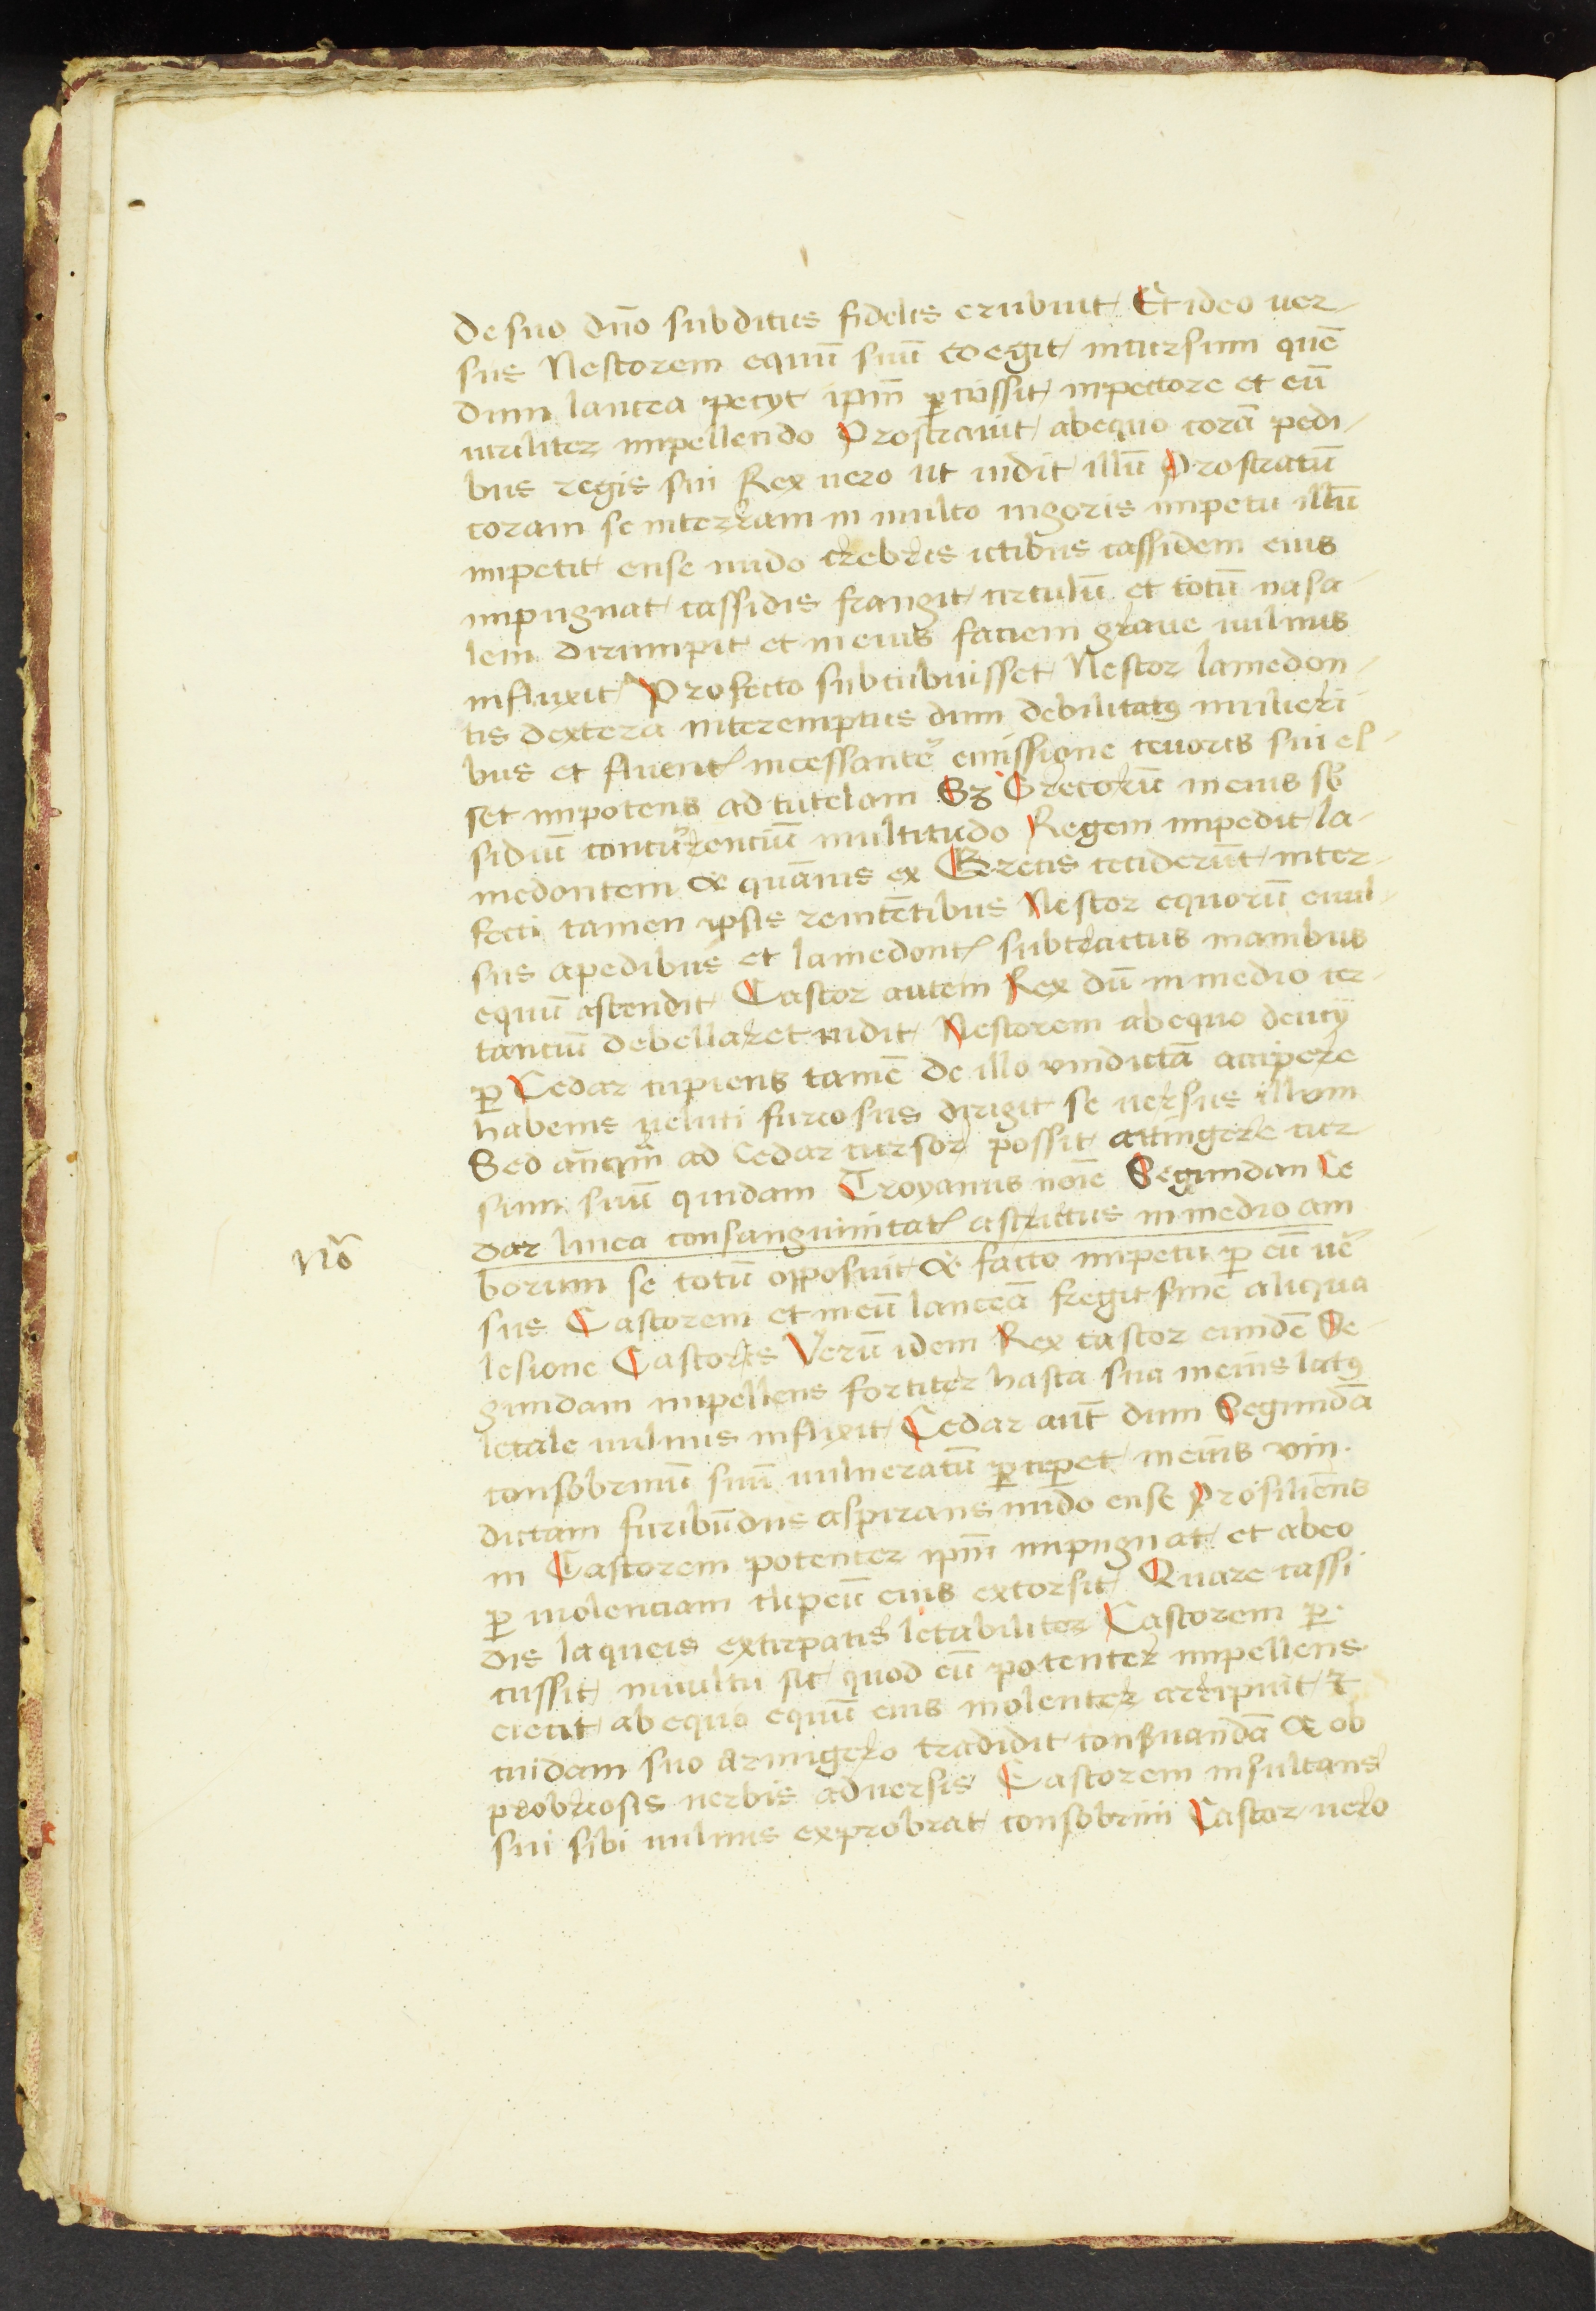 de suo dño subditus fidelis erubuit Et ideo uer-
sus Nestorem equũ suũ coegit incursum quẽ
dum lancea petyt ipm̃ ꝑcussit inpectore et eũ
uiriliter impellendo Prostrauit abequo corã pedi-
bus regis sui Rex uero ut uidit illũ Prostratũ
coram se interram in multo uigoris impetu illũ
impetit ense nudo crebris ictibus cassidem eius
impugnat cassidis frangit circulũ et totũ nasa-
lem dirumpit et in eius faciem graue uulnus
influxit Profecto subcubuisset Nestor lamedon-
tis dextera interemptus dum debilitatꝰ
bus et fluentꝭ incessantẽ emissione cruoris sui es-
set impotens ad tutelam Sꝫ Grecorũ in eius sb̃
sidiũ concurrenciũ multitudo Regem impedit la-
medontem & quãuis ex Grecis ceciderũt inter-
fecti tamen ipsis renitẽtibus Nestor equorũ euul-
sus apedibus et lamedontꝭ subtractus manibus
equũ ascendit Castor autem Rex dũ in medio cer-
tanciũ debellaret uidit Nestorem abequo deiicy
ꝑ Cedar cupiens tamẽ de illo vindictã accipere
habenis ueluti furiosus dirigit se uersus illum
Sed añqm̃ ad Cedar cursor possit attingere cur-
sum suũ quidam Troyanus noĩe Segundan Ce
dar linea consanguinitatꝭ astrictus in medio am
Nõ
borum se totũ opposuit & facto impetu ꝑ eũ uẽ
sus Castorem et in eũ lanceã fregit sine aliqua
lesione Castoris Verũ idem Rex castor eundẽ Se-
gundam impellens fortiter hasta sua in eius latꝰ
letale uulnus inflixit Cedar aut̃ dum Segundã
consobrinũ suũ uulneratũ ꝑcipet in eius vin-
dictam furibũdus aspirans nudo ense Prosiliens
in Castorem potenter ipm̃ impugnat et abeo
ꝑ uiolenciam clipeũ eius extorsit Quare cassi
dis laqueis extirpatis letabiliter Castorem ꝑ-
cussit inuultu sic quod eũ potenter impellens
eiecit ab equo equũ eius uiolenter arripuit &
cuidam suo armigero tradidit conseruandã & ob
probriosis uerbis aduersis Castorem insultans
sui sibi uulnus exprobrat consobrini Castor uero